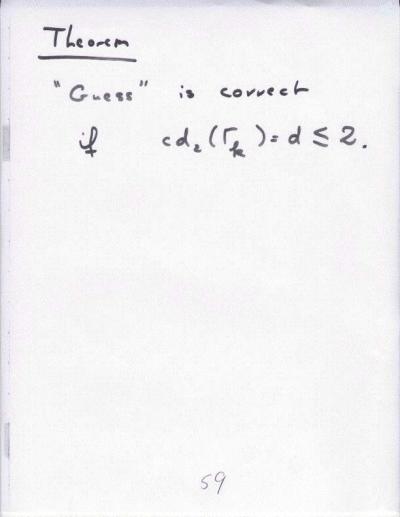 Theorem
"Guess" is correct
if cd₂(Γ_k) = d ≤ 2.
59